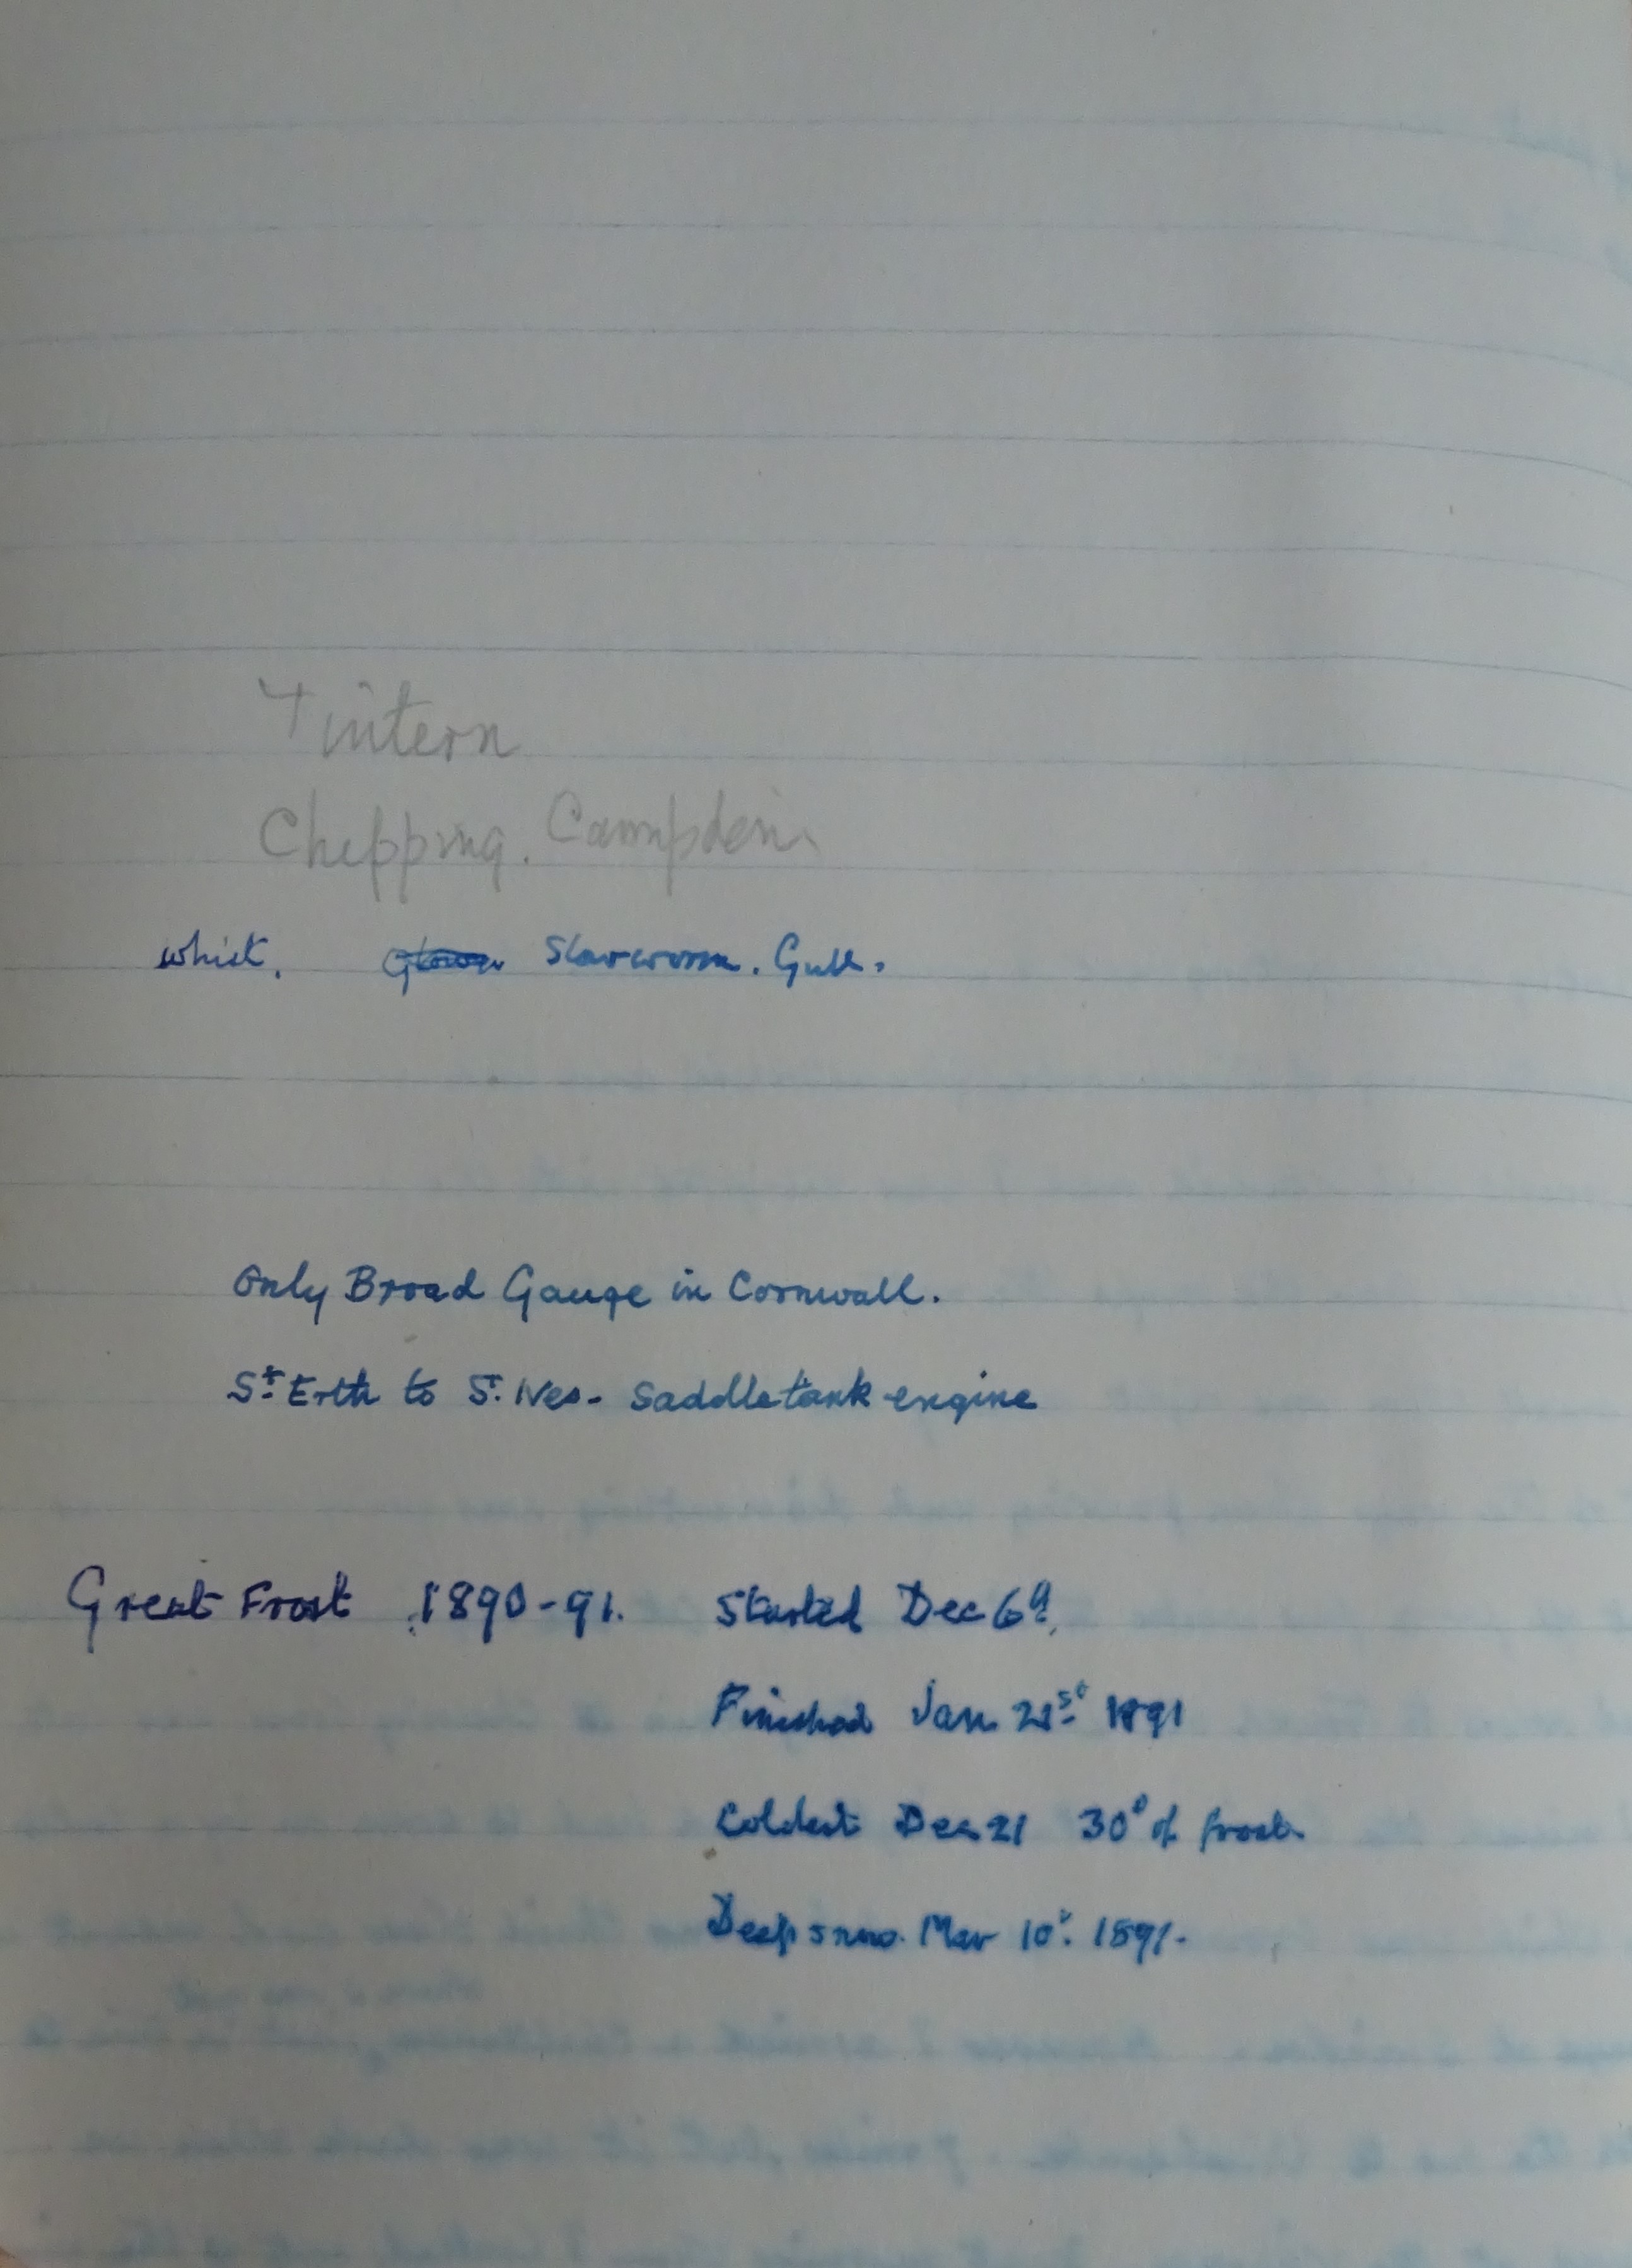 Tintern
Chepping. Campden
Whist. Slowworm. Gull.
Only Broad Gauge in Cornwall.
St Erth to St. Ives - Saddletank engine
Great Frost 1890-91. Started Dec 6th
Finished Jan 21st 1891
Coldest Dec 21 30° of frost
Deep snow. Mar 10. 1891.